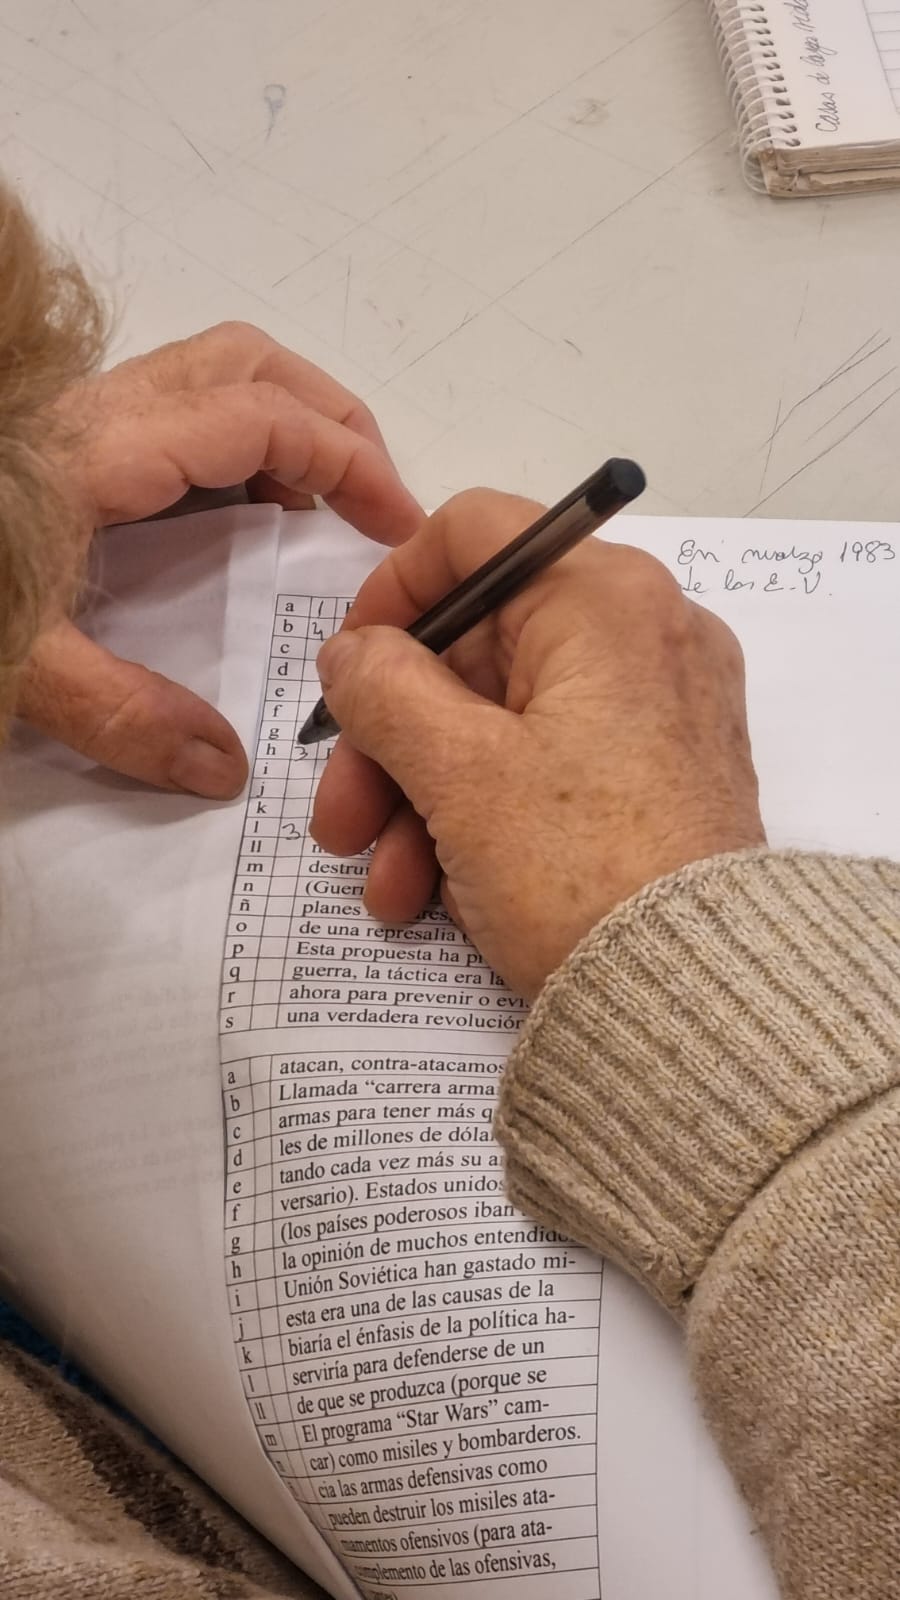 Casas de
En marzo 1983
de los E.V.
a 1
b 4
c
d
e
f
g
h 3
i
j
k
l 3
ll
m destrui
n (Guerr
ñ planes
o de una represalia
p Esta propuesta ha pr
q guerra, la táctica era la
r ahora para prevenir o evi
s una verdadera revolución
a atacan, contra-atacamos
b Llamada “carrera arma
c armas para tener más q
d les de millones de dóla
e tando cada vez más su a
f versario). Estados unidos
g (los países poderosos iban
h la opinión de muchos entendido
i Unión Soviética han gastado mi-
j esta era una de las causas de la
k biaría el énfasis de la política ha-
l serviría para defenderse de un
ll de que se produzca (porque se
m El programa “Star Wars” cam-
n car) como misiles y bombarderos.
cia las armas defensivas como
pueden destruir los misiles ata-
mamentos ofensivos (para ata-
complemento de las ofensivas,